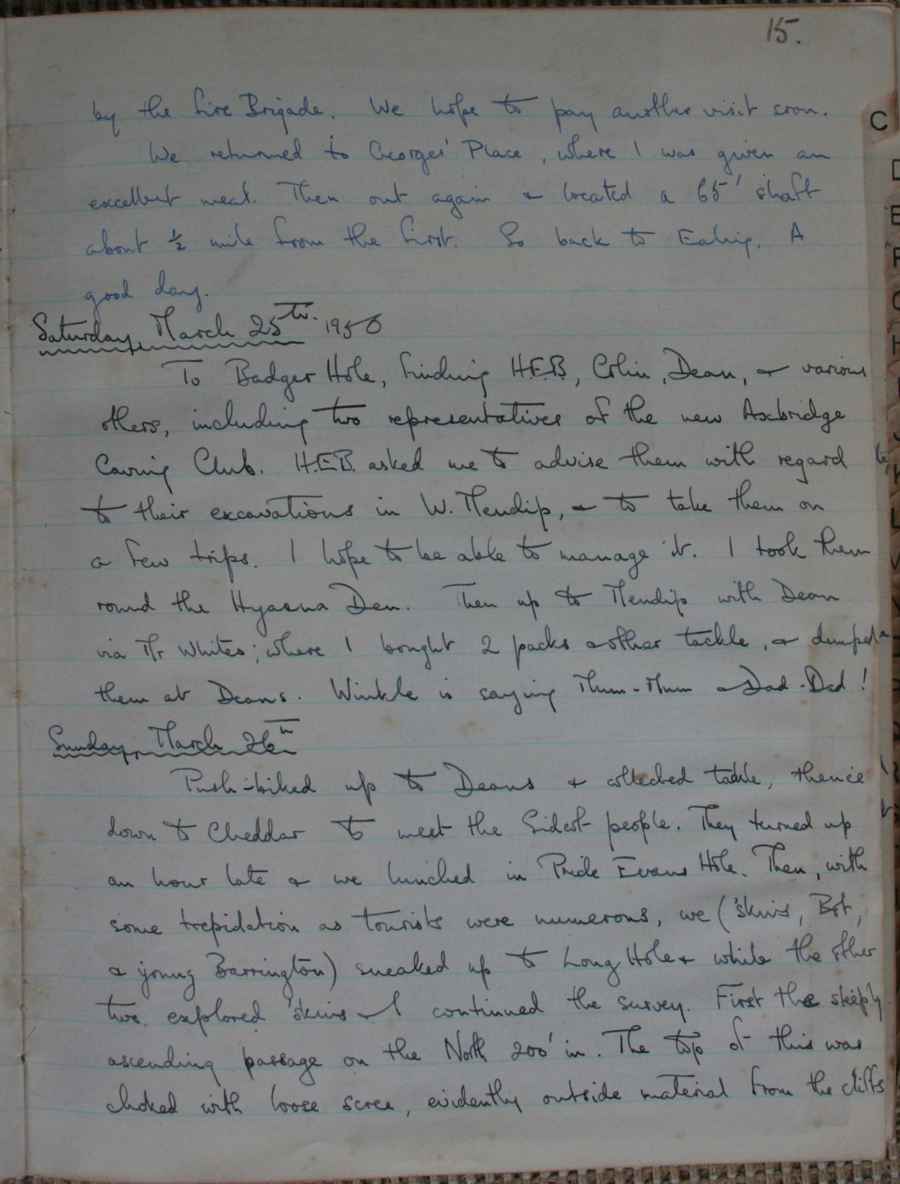 15.
by the Fire Brigade. We hope to pay another visit soon.
We returned to Georges' Place, where I was given an
excellent meal. Then out again & located a 65' shaft
about ½ mile from the first. So back to Ealing. A
good day.
Saturday, March 25th. 1950
To Badger Hole, finding H.E.B., Colin, Dean, & various
others, including two representatives of the new Axbridge
Caving Club. H.E.B. asked me to advise them with regard
to their excavations in W. Mendip, & to take them on
a few trips. I hope to be able to manage it. I took them
round the Hyaena Den. Then up to Mendip with Dean
via Mr Whites; where I bought 2 packs & other tackle, & dumped
them at Deans. Winkle is saying Mum-Mum & Dad-Dad!
Sunday, March 26th
Push-biked up to Deans & collected tackle, thence
down to Cheddar to meet the Sidcot people. They turned up
an hour late & we lunched in Pride Evans Hole. Then, with
some trepidation as tourists were numerous, we ('skins, Bot,
& young Barrington) sneaked up to Long Hole & while the other
two explored 'skins & I continued the survey. First the steeply
ascending passage on the North 200' in. The top of this was
choked with loose scree, evidently outside material from the cliffs
C
E
F
H
L